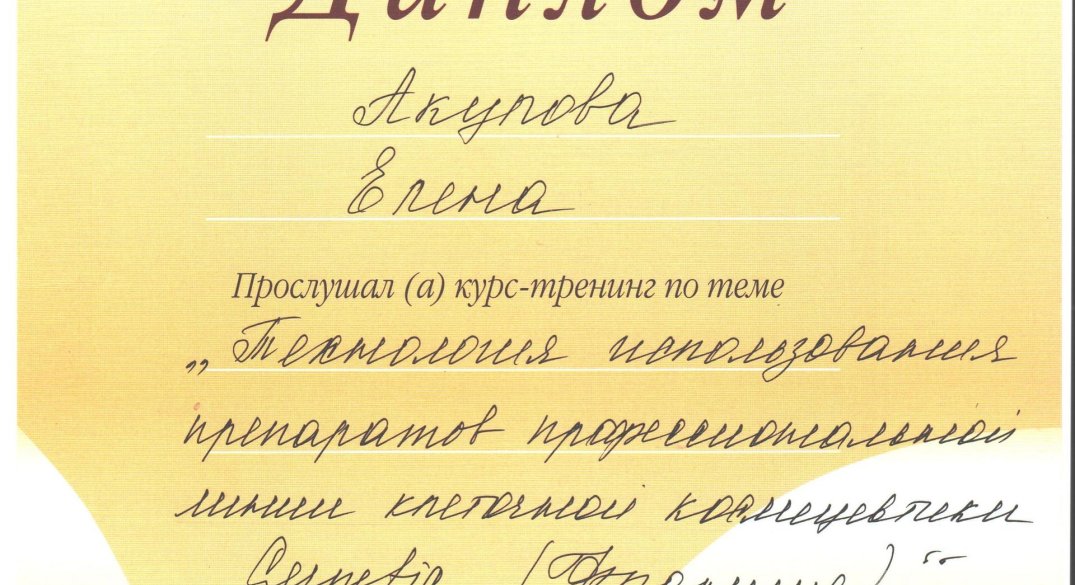 Диплом
Акупова
Елена
Прослушал (а) курс-тренинг по теме
„Технология использования
препаратов профессиональной
линии клеточной космецевтики
(Франция)“